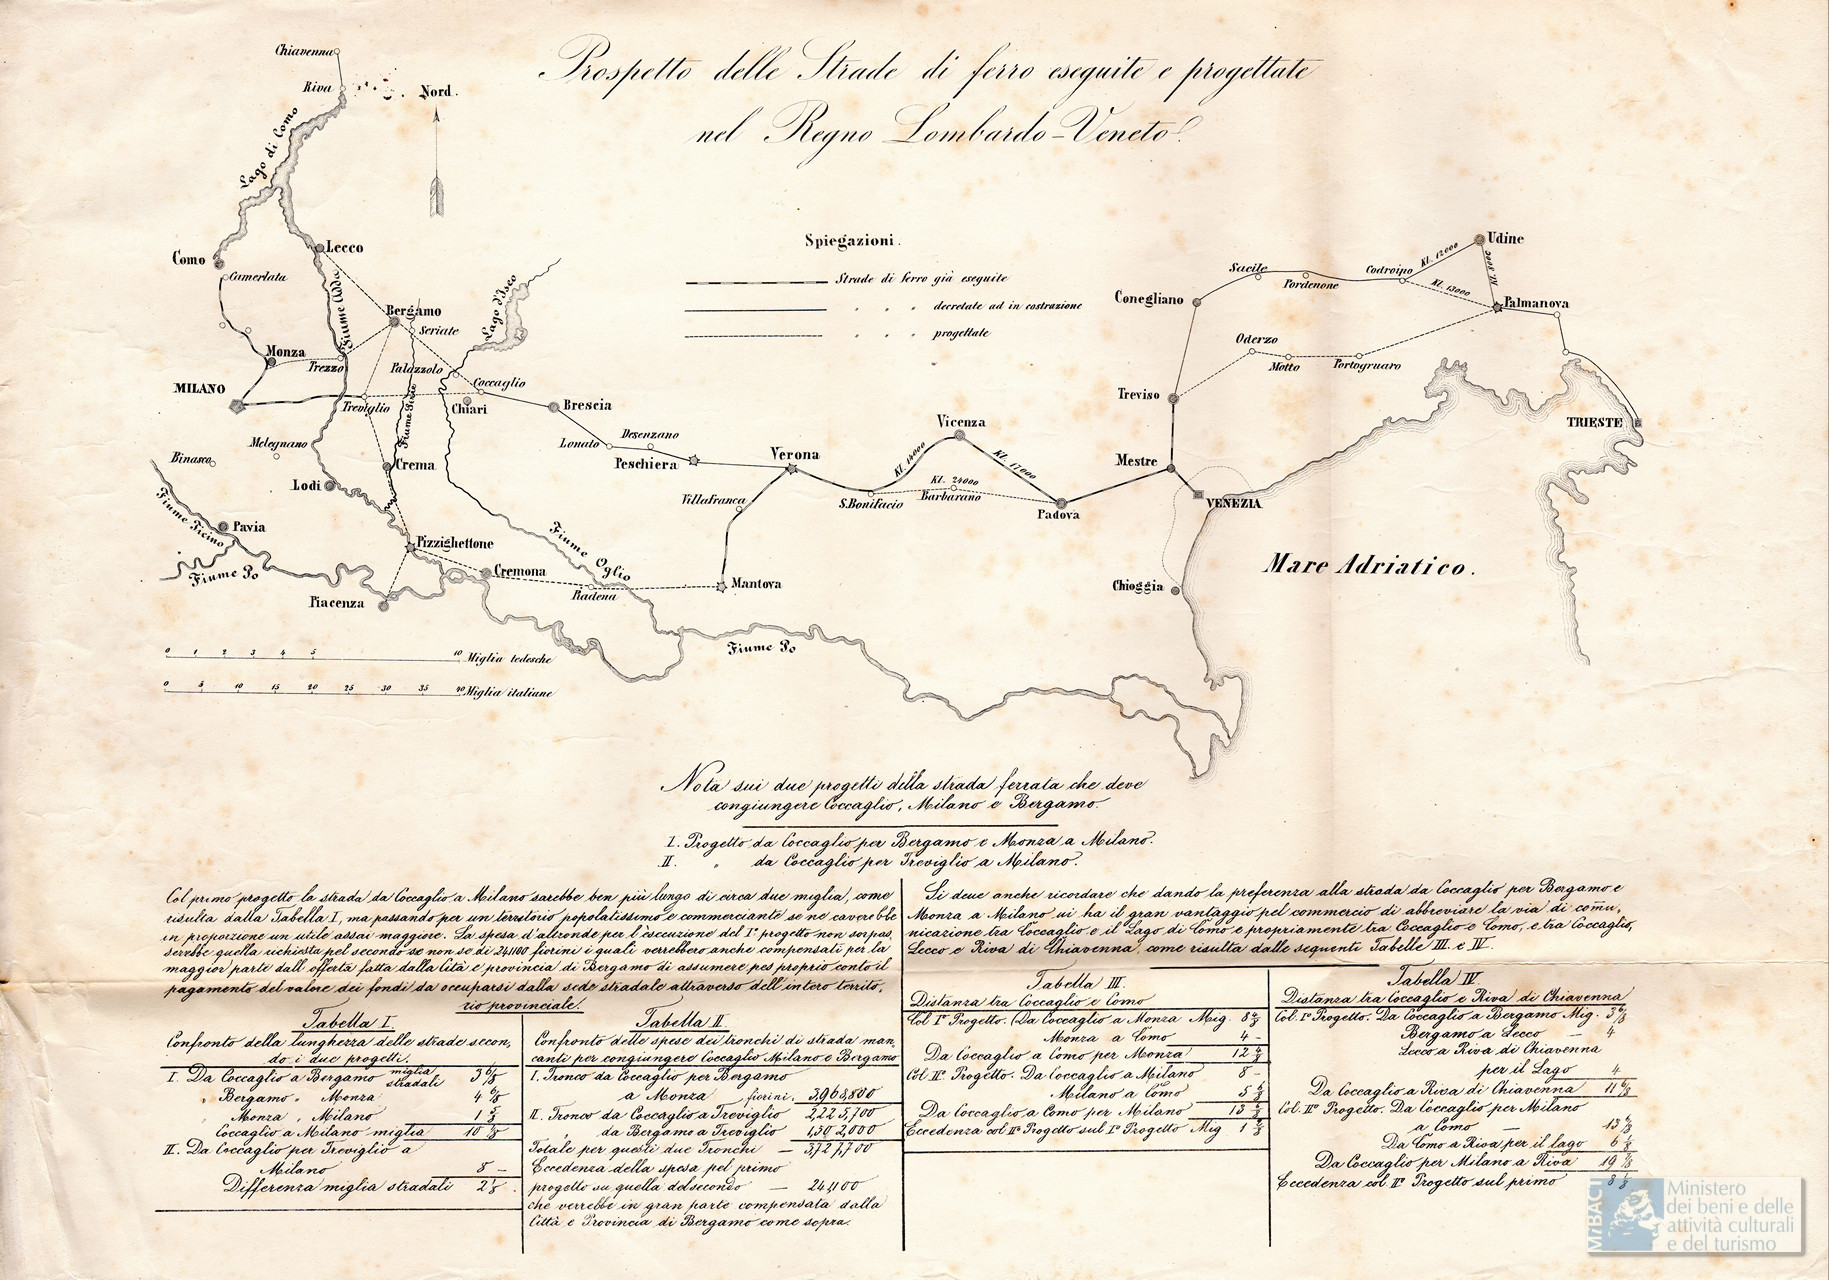 Prospetto delle Strade di ferro eseguite e progettate
nel Regno Lombardo-Veneto.
Chiavenna
Riva
Nord.
Lago di Como
Lecco
Como
Camerlata
Fiume Adda
Bergamo
Seriate
Lago d'Iseo
Monza
Trezzo
Palazzolo
Coccaglio
MILANO
Treviglio
Chiari
Brescia
Fiume Serio
Melegnano
Binasco
Lodi
Crema
Lonato
Desenzano
Peschiera
Verona
Villafranca
Pavia
Fiume Ticino
Fiume Po
Pizzighettone
Fiume Oglio
Cremona
Piadena
Mantova
Piacenza
Fiume Po
Spiegazioni.
Strade di ferro già eseguite
" " " decretate ad in costrazione
" " " progettate
Vicenza
Kl. 14000
Kl. 17000
S. Bonifacio
Kl. 24000
Barbarano
Padova
Mestre
VENEZIA
Chioggia
Treviso
Conegliano
Sacile
Pordenone
Codroipo
Kl. 12000
Udine
Kl. 8000
Kl. 13000
Palmanova
Oderzo
Motto
Portogruaro
TRIESTE
Mare Adriatico.
0 1 2 3 4 5 10 Miglia tedesche
0 5 10 15 20 25 30 35 40 Miglia italiane
Nota sui due progetti della strada ferrata che deve
congiungere Coccaglio, Milano e Bergamo.
I. Progetto da Coccaglio per Bergamo e Monza a Milano.
II. " da Coccaglio per Treviglio a Milano.
Col primo progetto la strada da Cocaglio a Milano sarebbe ben più lungo di circa due miglia, come
risulta dalla Tabella I, ma passando per un territorio popolatissimo e commerciante se ne caverebbe
in proporzione un utile assai maggiore. La spesa d'altronde per l'esecuzione del I° progetto non sorpas,
serebbe quella richiesta pel secondo se non se di 241100 fiorini i quali verrebbero anche compensati per la
maggior parte dall'offerta fatta dalla Città e provincia di Bergamo di assumere pes proprio conto il
pagamento del valore dei fondi da occuparsi dalla sede stradale attraverso dell'intero territo,
rio provinciale.
Tabella I.
Confronto della lunghezza delle strade secon,
do i due progetti.
I. Da Coccaglio a Bergamo miglia stradali 3 6/8
" Bergamo " Monza 4 6/8
" Monza " Milano 1 5/8
Coccaglio a Milano miglia 10 1/8
II. Da Coccaglio per Treviglio a
Milano 8 —
Differenza miglia stradali 2 1/8
Tabella II.
Confronto delle spese dei tronchi di strada man,
canti per congiungere Coccaglio Milano e Bergamo
I. Tronco da Coccaglio per Bergamo
a Monza fiorini. 3,968,800
II. Tronco da Coccaglio a Treviglio 2,225,700
da Bergamo a Treviglio 1,502,000
Totale per questi due Tronchi — 3,727,700
Eccedenza della spesa pel primo
progetto su quella del secondo — 241,100
che verrebbe in gran parte compensata dalla
Città e Provincia di Bergamo come sopra.
Si deve anche ricordare che dando la preferenza alla strada da Coccaglio per Bergamo e
Monza a Milano vi ha il gran vantaggio pel commercio di abbreviare la via di comu,
nicazione tra Coccaglio e il Lago di Como e propriamente tra Coccaglio e Como, e tra Coccaglio,
Lecco e Riva di Chiavenna, come risulta dalle seguenti Tabelle III. e IV.
Tabella III.
Distanza tra Coccaglio e Como
Col I° Progetto. (Da Coccaglio a Monza Mig. 8 4/8
Monza a Como 4 —
Da Coccaglio a Como per Monza 12 4/8
Col II° Progetto. Da Coccaglio a Milano 8 —
Milano a Como 5
Da Coccaglio a Como per Milano 13
Eccedenza col II° Progetto sul I° Progetto Mig 1
Tabella IV.
Distanza tra Coccaglio e Riva di Chiavenna
Col. I° Progetto. Da Coccaglio a Bergamo Mig. 3 6/8
Bergamo a Lecco — 4
Lecco a Riva di Chiavenna
per il Lago 4
Da Coccaglio a Riva di Chiavenna 11 6/8
Col. II° Progetto. Da Coccaglio per Milano
a Como — 13
Da Como a Riva per il lago 6
Da Coccaglio per Milano a Riva 19
Eccedenza col II° Progetto sul primo 8
MiBACT
Ministero
dei beni e delle
attività culturali
e del turismo